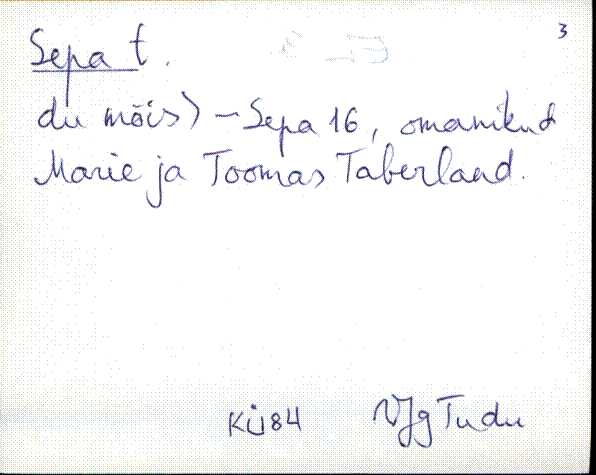 3
Sepa t.
du mõis) – Sepa 16, omanikud
Marie ja Toomas Taberland.
KÜ84 VJg Tudu